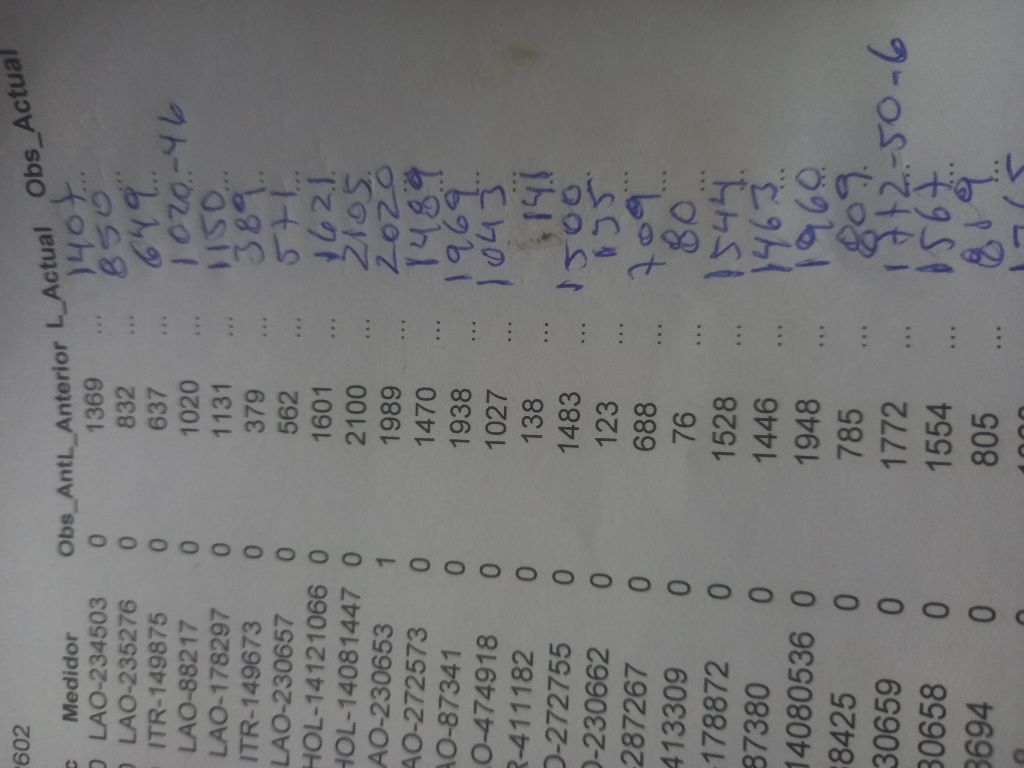 2602
Medidor Obs_AntL_Anterior L_Actual Obs_Actual
LAO-234503 0 1369 ... 1407 ...
LAO-235276 0 832 ... 850 ...
ITR-149875 0 637 ... 649 ...
LAO-88217 0 1020 ... 1020-46
LAO-178297 0 1131 ... 1150 ...
ITR-149673 0 379 ... 389 ...
LAO-230657 0 562 ... 571 ...
HOL-14121066 0 1601 ... 1621 ...
HOL-14081447 0 2100 ... 2105 ...
AO-230653 1 1989 ... 2020 ...
AO-272573 0 1470 ... 1489 ...
AO-87341 0 1938 ... 1969 ...
O-474918 0 1027 ... 1043 ...
R-411182 0 138 ... 141 ...
O-272755 0 1483 ... 1500 ...
O-230662 0 123 ... 135 ...
287267 0 688 ... 709 ...
413309 0 76 ... 80 ...
178872 0 1528 ... 1544 ...
87380 0 1446 ... 1463 ...
14080536 0 1948 ... 1960 ...
8425 0 785 ... 809 ...
30659 0 1772 ... 1772-50-6
30658 0 1554 ... 1567 ...
3694 0 805 ... 819 ...